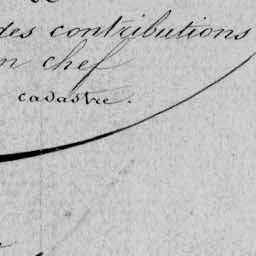 des contributions
n chef
cadastre.